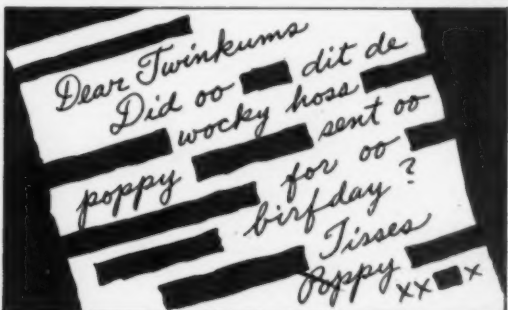 Dear Twinkums
Did oo dit de
wocky hoss
poppy sent oo
for oo
birfday?
Tisses
Poppy
xx x